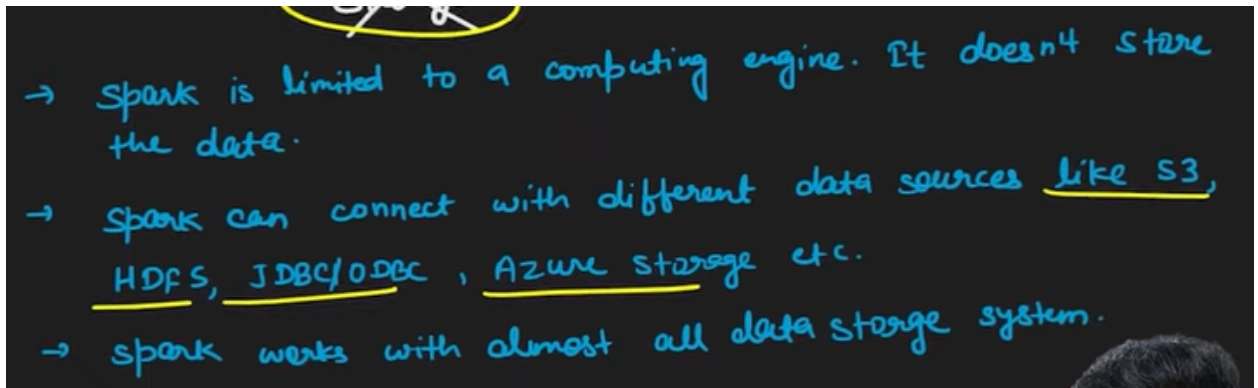 → spark is limited to a computing engine. It doesn't store
the data.
→ spark can connect with different data sources like S3,
HDFS, JDBC/ODBC, Azure storage etc.
→ spark works with almost all data storge system.